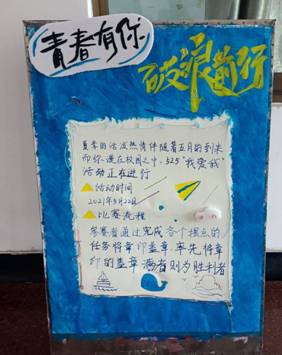 青春有你
破浪前行
夏季的活泼热情伴随着五月的到来
而你漫在校园之中，525"我爱我"
活动正在进行
活动时间
2021年5月22日
比赛流程
参赛者通过完成各个摊点的
任务将章印盖章，率先将章
印的盖章满者则为胜利者